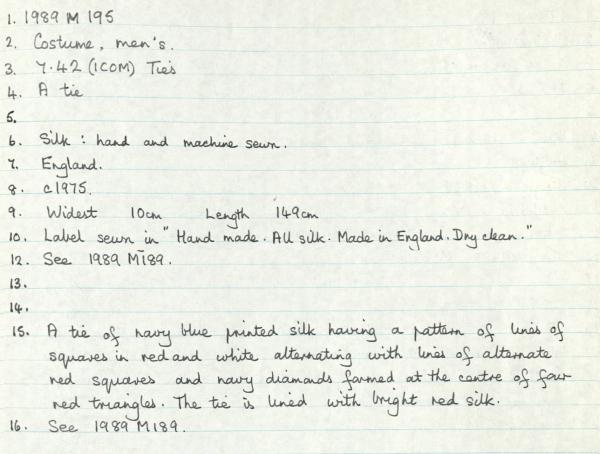 1. 1989 M 195
2. Costume, men's.
3. 7.42 (ICOM) Ties
4. A tie
5.
6. Silk : hand and machine sewn.
7. England.
8. c1975.
9. Widest 10cm Length 149cm
10. Label sewn in "Hand made. All silk. Made in England. Dry clean."
12. See 1989 M189.
13.
14.
15. A tie of navy blue printed silk having a pattern of lines of
squares in red and white alternating with lines of alternate
red squares and navy diamonds formed at the centre of four
red triangles. The tie is lined with bright red silk.
16. See 1989 M189.